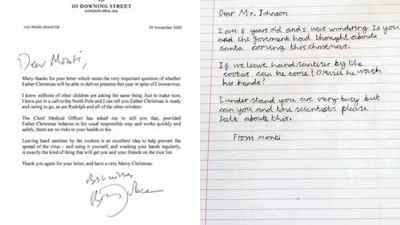 10 DOWNING STREET
LONDON SW1A 2AA
THE PRIME MINISTER
24 November 2020
Dear Monti,
Many thanks for your letter which raises the very important question of whether
Father Christmas will be able to deliver presents this year in spite of Coronavirus.
I know millions of other children are asking the same thing. Just to make sure,
I have put in a call to the North Pole and I can tell you Father Christmas is ready
and raring to go, as are Rudolph and all of the other reindeer.
The Chief Medical Officer has asked me to tell you that, provided
Father Christmas behaves in his usual responsible way and works quickly and
safely, there are no risks to your health or his.
Leaving hand sanitiser by the cookies is an excellent idea to help prevent the
spread of the virus – and using it yourself, and washing your hands regularly,
is exactly the kind of thing that will get you and your friends on the nice list.
Thank you again for your letter, and have a very Merry Christmas.
Best wishes
Dear Mr. Johnson
I am 8 years old and I was wondering if you
and the goverment had thought about
santa coming this christmas.
If we leave hand sanitiser by the
cookies can he come? Or will he wash
his hands?
I understand you are very busy but
can you and the scientists please
talk about this.
From monti